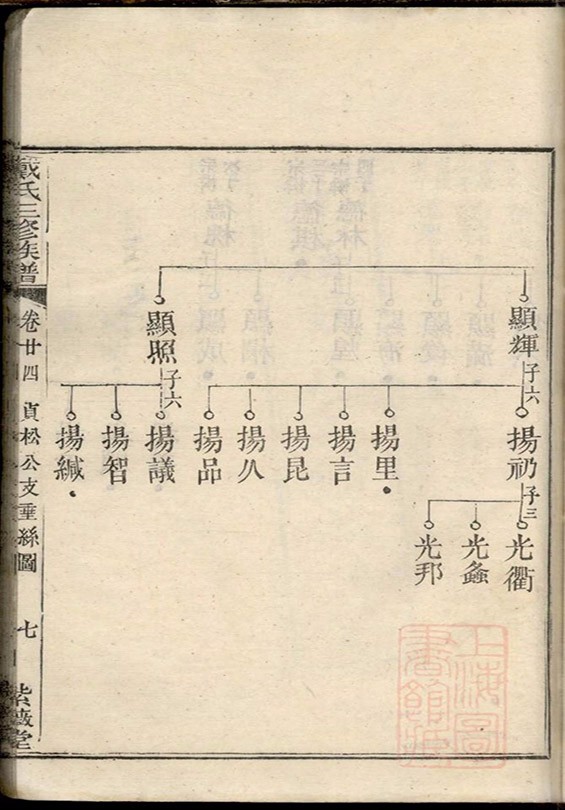 顯輝 子六
顯照 子六
揚礽 子三
揚里
揚言
揚昆
揚㐺
揚品
揚議
揚智
揚緘
光衢
光螽
光邦
戴氏三修族譜
卷廿四 貞松公支垂絲圖
七
紫薇堂
上海圖書館藏